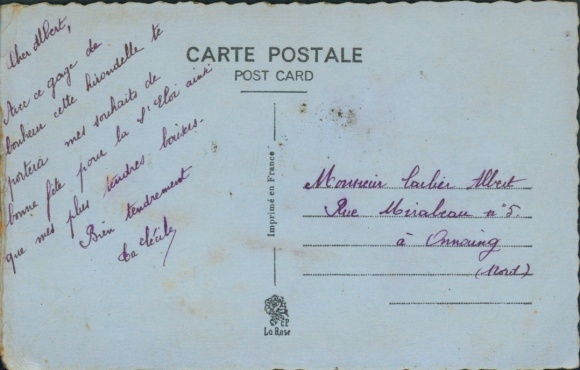 Cher Albert,
Avec ce gage de
bonheur cette hirondelle te
portera mes souhaits de
bonne fête pour la St Eloi ainsi
que mes plus tendres baisers.
Bien tendrement
Ta Cécile
CARTE POSTALE
POST CARD
Imprimé en France
CP
La Rose
Monsieur Carlier Albert
Rue Mirabeau n° 5
à Onnaing
(Nord)